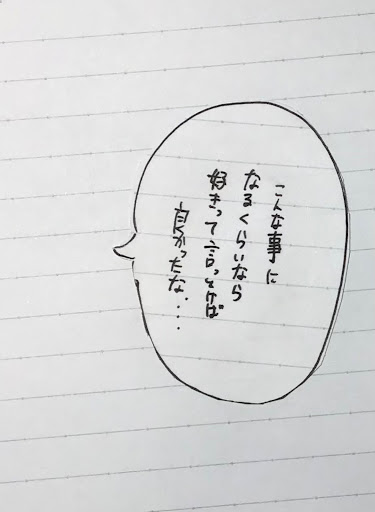 こんな事に
なるくらいなら
好きって言っとけば
良かったな....